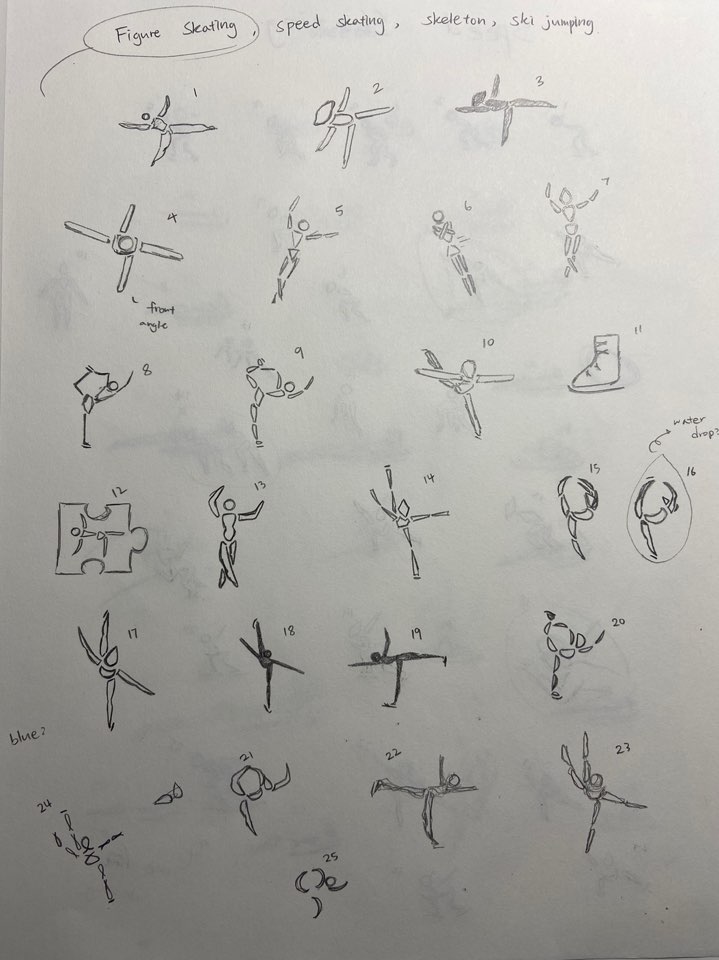 Figure Skating, speed skating, skeleton, ski jumping
1
2
3
4
5
6
7
front
angle
8
9
10
11
water
drop?
12
13
14
15
16
17
18
19
20
blue?
21
22
23
24
25